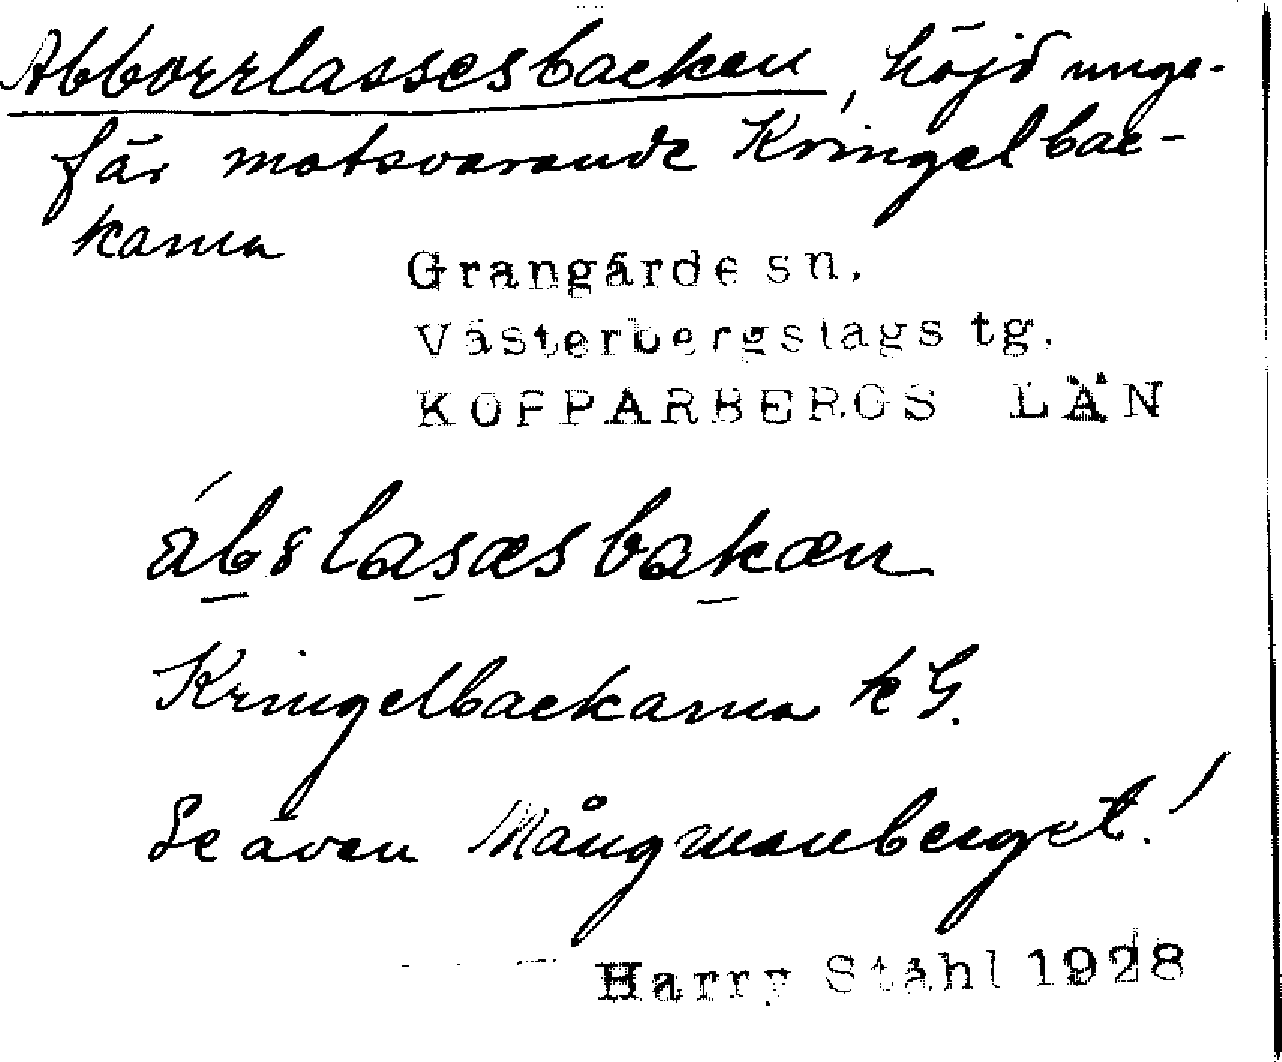 Abborrlassesbacken, höjd unge-
fär motsvarande Kringelbac-
karna
Grangärde sn.
Västerbergslags tg.
KOPPARBERGS LÄN
ábslasæsbakæn
Kringelbackarna k G.
Se även Mångmanberget!
Harry Ståhl 1928